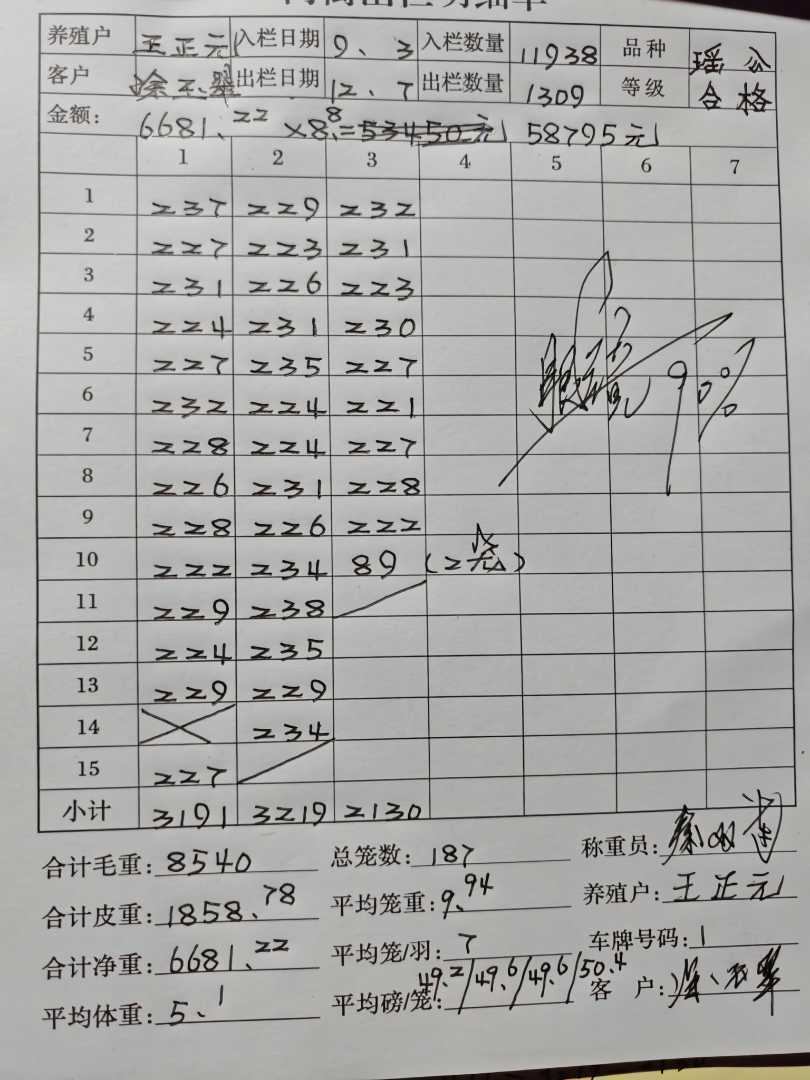 养殖户 王正元 入栏日期 9、3 入栏数量 11938 品种 瑶公
客户 出栏日期 12、7 出栏数量 1309 等级 合格
金额: 6681.22 ×8.8=53450元 58795元
1 2 3 4 5 6 7
1 237 229 232
2 227 223 231
3 231 226 223
4 224 231 230
5 227 235 227
6 232 224 221
7 228 224 227
8 226 231 228
9 228 226 222
10 222 234 89 (2笼)
11 229 238
12 224 235
13 229 229
14 234
15 227
小计 3191 3219 2130
合计毛重: 8540 总笼数: 187 称重员:
合计皮重: 1858.78 平均笼重: 9.94 养殖户: 王正元
合计净重: 6681.22 平均笼/羽: 7 车牌号码: 1
平均体重: 5.1 平均磅/笼: 49.2/49.6/49.6/50.4 客 户: